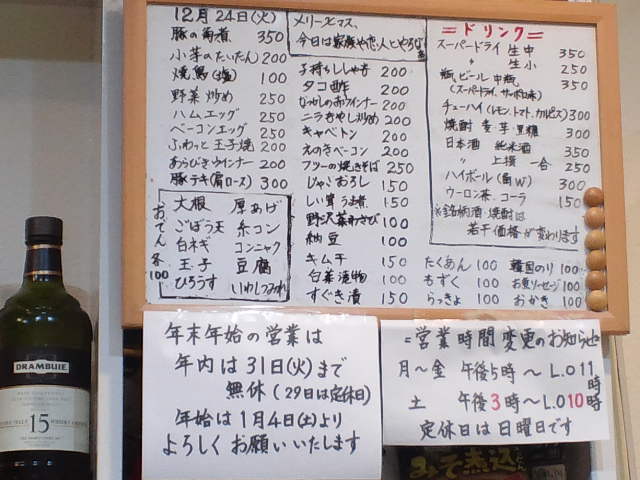 12月24日(火)
豚の角煮 350
小芋のたいたん 200
焼鳥(塩) 100
野菜炒め 250
ハムエッグ 250
ベーコンエッグ 250
ふわっと玉子焼 200
あらびきウインナー 200
豚テキ(肩ロース) 300
おでん各100
大根 厚あげ
ごぼう天 糸コン
白ネギ コンニャク
玉子 豆腐
ひろうす いわしつみれ
メリークリスマス、
今日は家族や恋人とやろなぁ
子持ちししゃも 200
タコ酢 200
なつかしの赤ウインナー 200
ニラもやし炒め 200
キャベトン 200
えのきベーコン 200
フツーの焼きそば 250
じゃこおろし 150
しい茸うま煮 150
野沢菜わさび 100
納豆 100
キムチ 150
白菜漬物 100
すぐき漬 150
=ドリンク=
スーパードライ 生中 350
〃 生小 250
瓶ビール 中瓶 350
(スーパードライ、サッポロ赤)
チューハイ(レモン、トマト、カルピス) 300
焼酎 麦・芋・黒糖 300
日本酒 純米酒 350
〃 上撰 一合 250
ハイボール(角W) 300
ウーロン茶・コーラ 150
※銘柄酒・焼酎は
若干価格が変わります
たくあん 100 韓国のり 100
もずく 100 お魚ソーセージ 100
らっきょ 100 おかき 100
年末年始の営業は
年内は31日(火)まで
無休(29日は定休日)
年始は1月4日(土)より
よろしくお願いいたします
=営業時間変更のお知らせ
月〜金 午後5時〜L.O11時
土 午後3時〜L.O10時
定休日は日曜日です
DRAMBUIE
15
みそ煮込